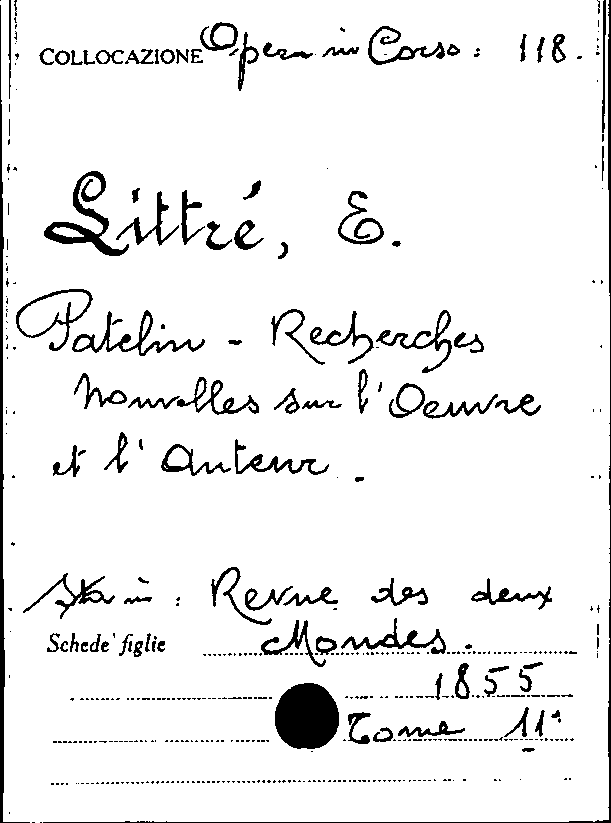 COLLOCAZIONE Opera in Corso: 118.
Littré, E.
Patelin - Recherches
nouvelles sur l'Oeuvre
et l'Auteur.
Sta in: Revue des deux
Schede figlie Mondes.
1855
Tome 11°